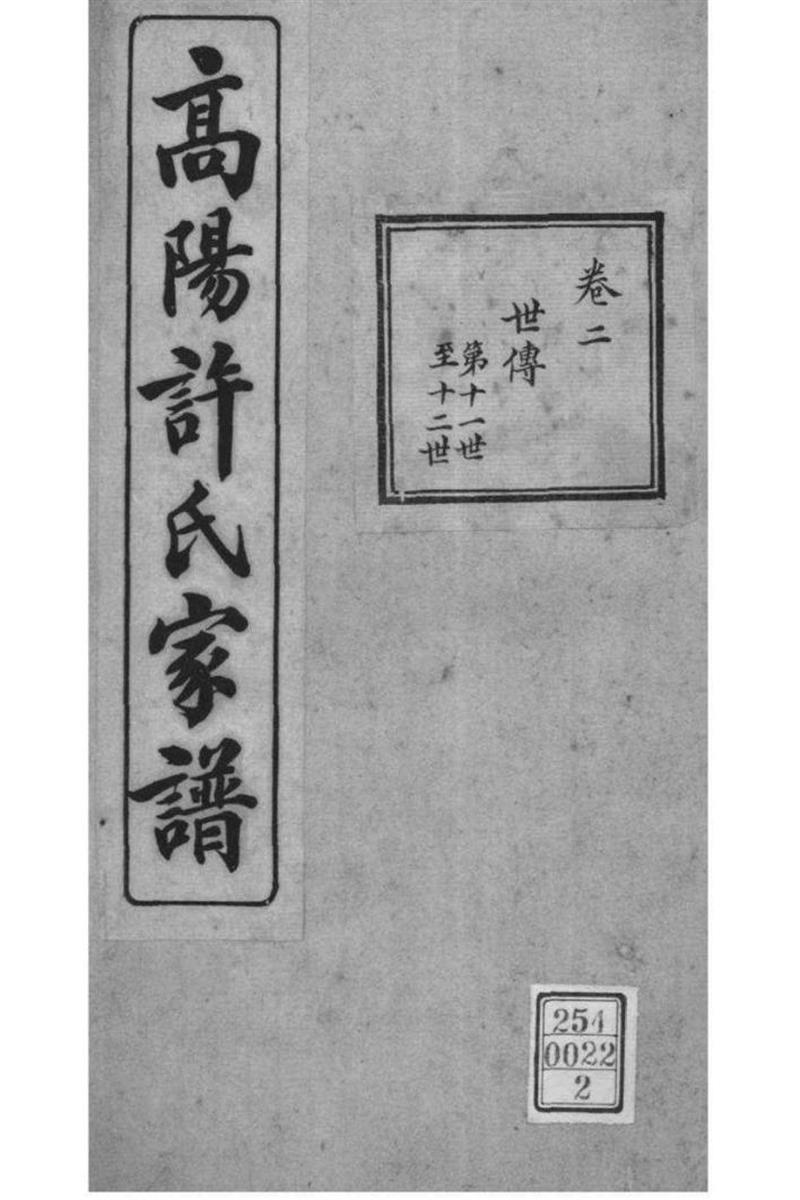 高陽許氏家譜
卷二
世傳
第十一世
至十二世
254
0022
2